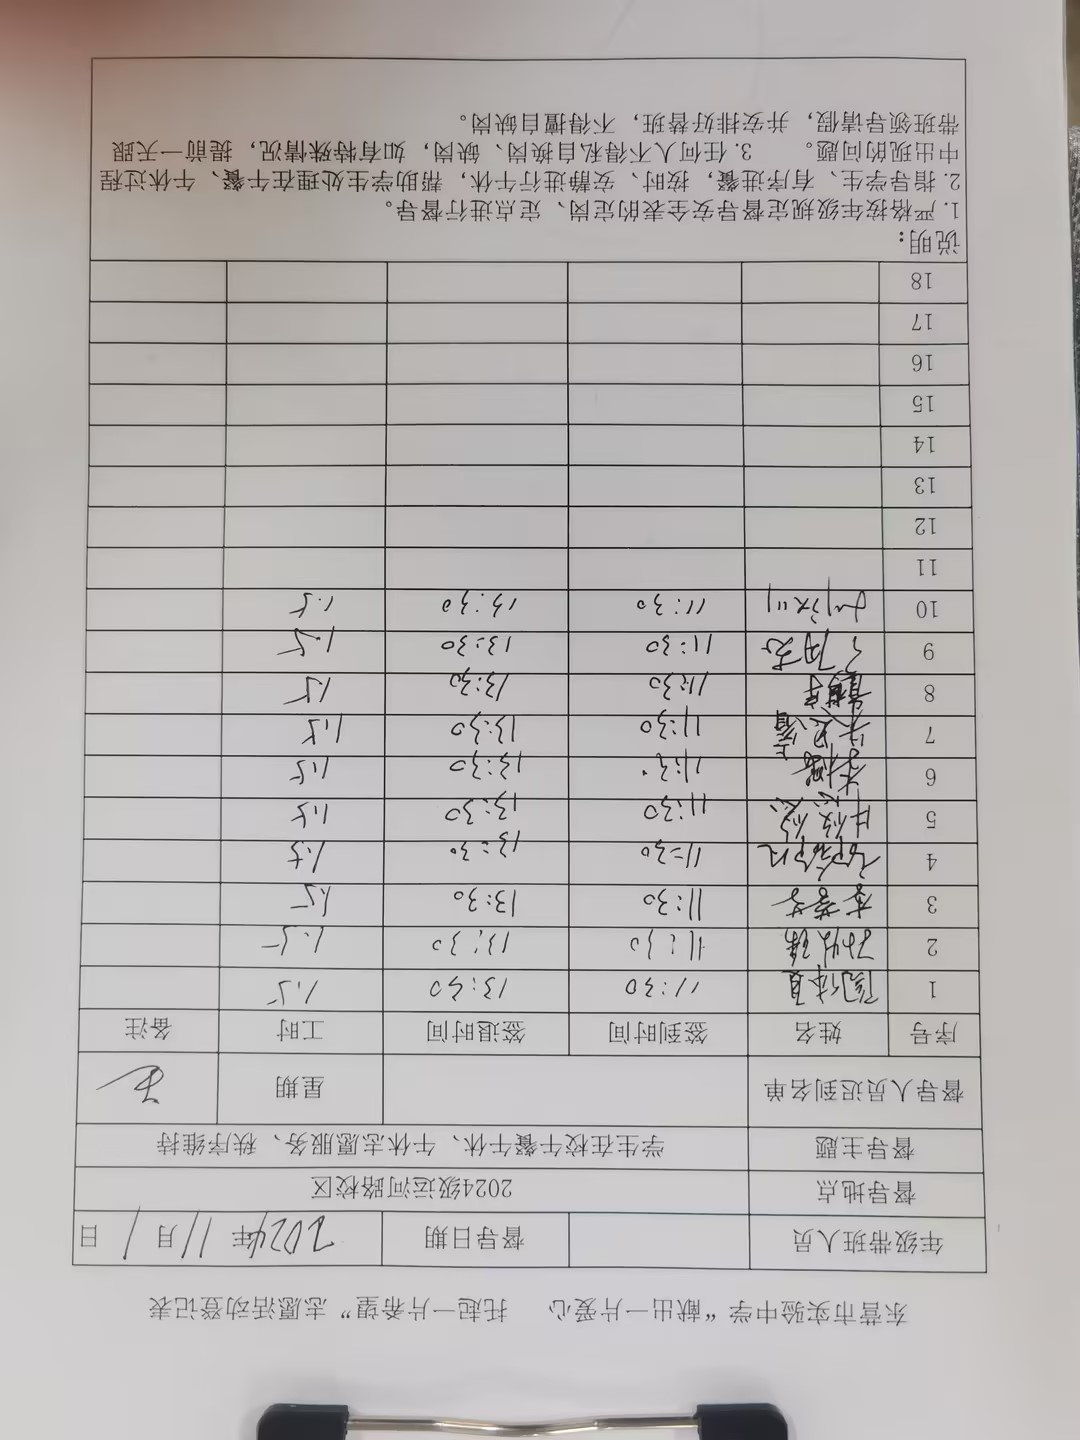 东营市实验中学“献出一片爱心 托起一片希望”志愿活动登记表
年级带班人员 督导日期 2024年 11月 1 日
督导地点 2024级运河路校区
督导主题 学生在校午餐午休、午休志愿服务、秩序维持
督导人员迟到名单 星期 五
序号 姓名 签到时间 签退时间 工时 备注
1 11:30 13:30 1.5
2 11:30 13:30 1.5
3 李芳芳 11:30 13:30 1.5
4 11:30 13:30 1.5
5 11:30 13:30 1.5
6 11:30 13:30 1.5
7 11:30 13:30 1.5
8 11:30 13:30 1.5
9 11:30 13:30 1.5
10 11:30 13:30 1.5
11
12
13
14
15
16
17
18
说明：
1. 严格按年级规定督导安全表的定岗、定点进行督导。
2. 指导学生、有序进餐，按时、安静进行午休，帮助学生处理在午餐、午休过程
中出现的问题。 3. 任何人不得私自换岗、缺岗，如有特殊情况，提前一天跟
带班领导请假，并安排好替班，不得擅自缺岗。